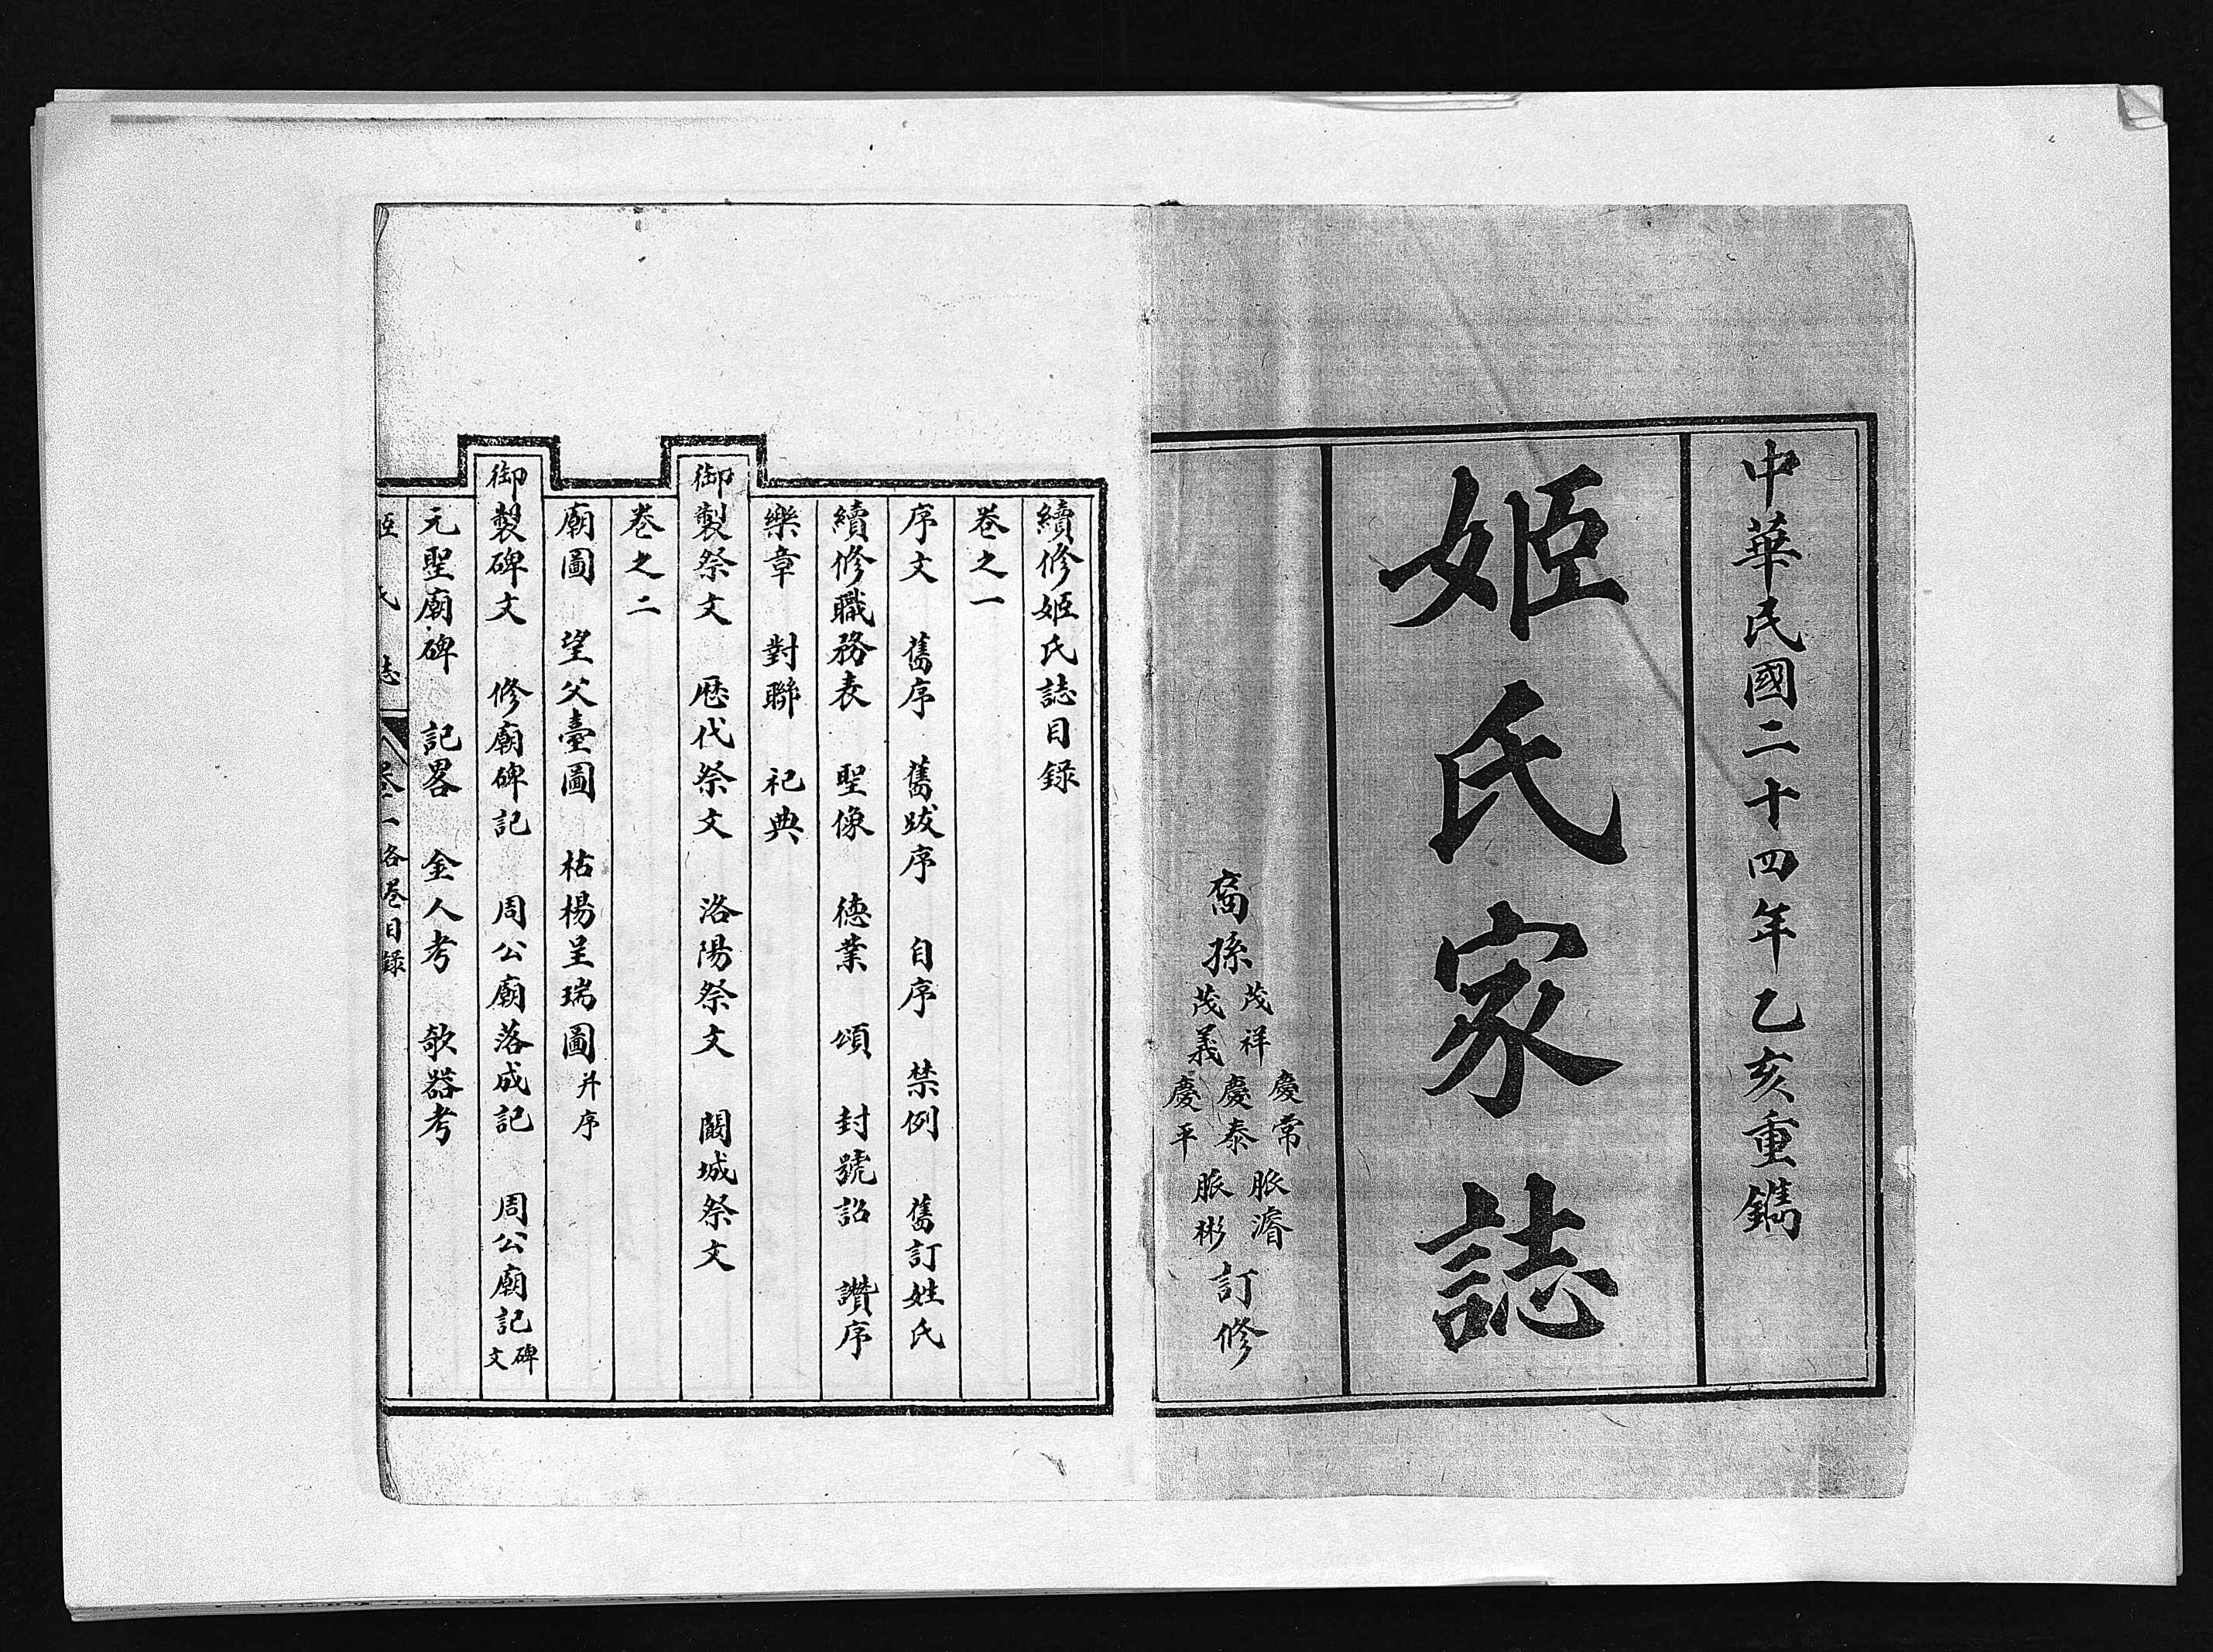 中華民國二十四年乙亥重鐫
姬氏家誌
裔孫 茂祥 茂義 慶常 慶泰 慶平 脈濬 脈彬 訂修
續修姬氏誌目録
卷之一
序文 舊序 舊跋序 自序 禁例 舊訂姓氏
續修職務表 聖像 德業 頌 封號詔 讚序
樂章 對聯 祀典
御製祭文 歷代祭文 洛陽祭文 闞城祭文
卷之二
廟圖 望父臺圖 枯楊呈瑞圖并序
御製碑文 修廟碑記 周公廟落成記 周公廟記碑文
元聖廟碑 記畧 金人考 欹器考
姬氏誌 卷一 各卷目録